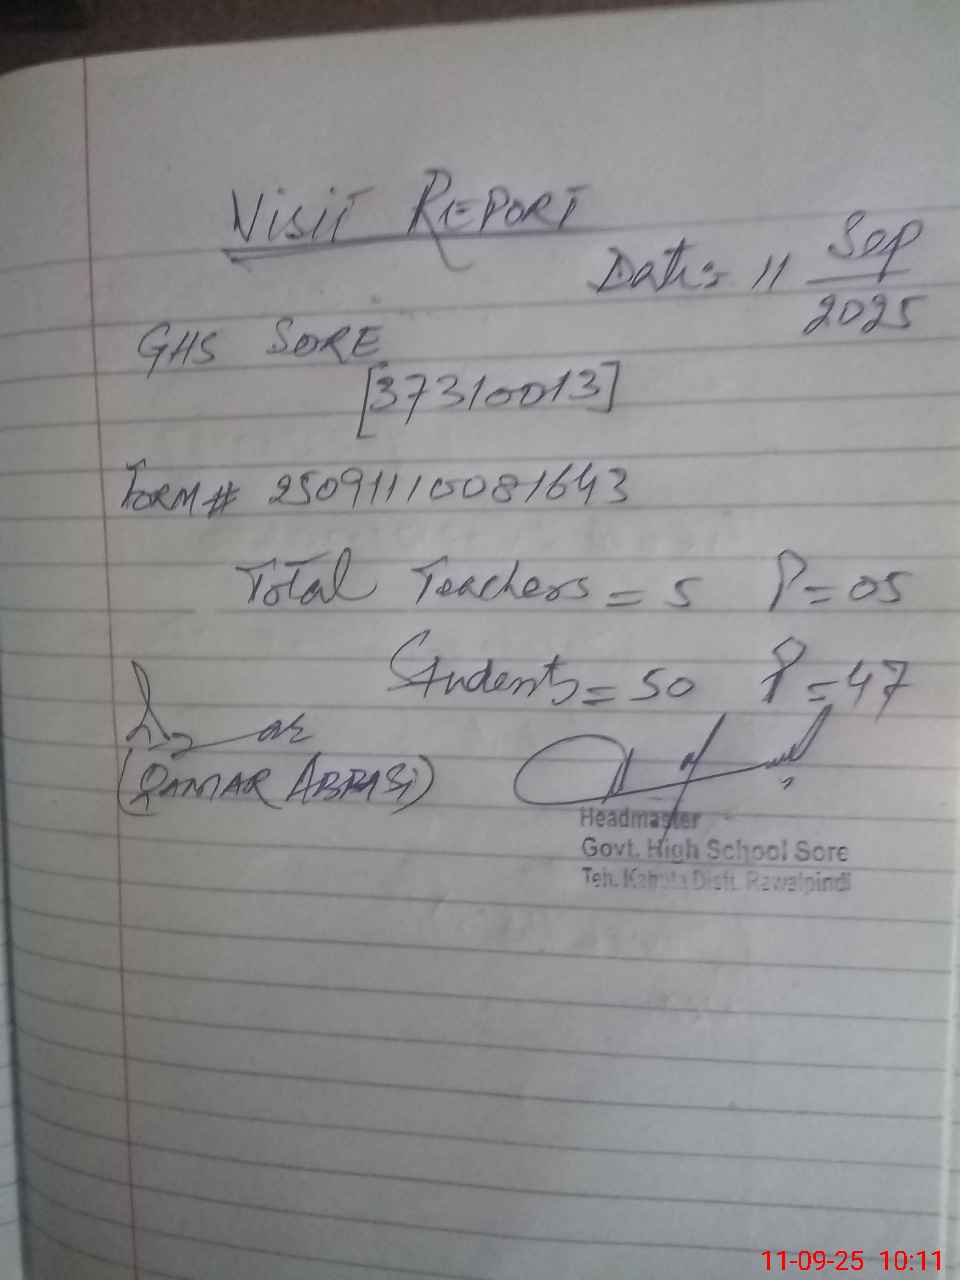 Visit REPORT
Date: 11 Sep
2025
GHS SORE
[37310013]
FORM# 25091110081643
Total Teachers = 5 P = 05
Students = 50 P = 47
(QAMAR ABBASI)
Headmaster
Govt. High School Sore
Teh. Kahuta Distt. Rawalpindi
11-09-25 10:11